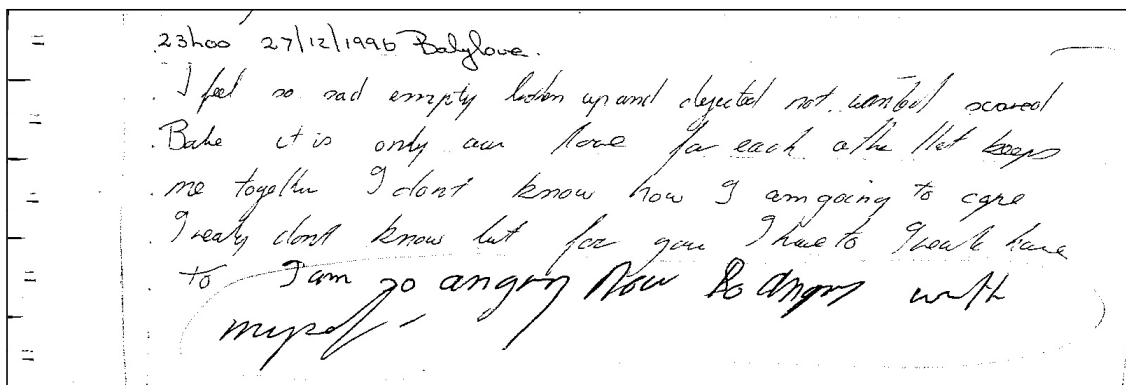 23hoo 27/12/1996 Babylove.
I feel so sad empty broken up and dejected not wanted scared
Babe it is only our love for each othe that keeps
me together I dont know how I am going to cope
I realy dont know but for you I have to I realy have
to I am so angry Now So Angry with
myself